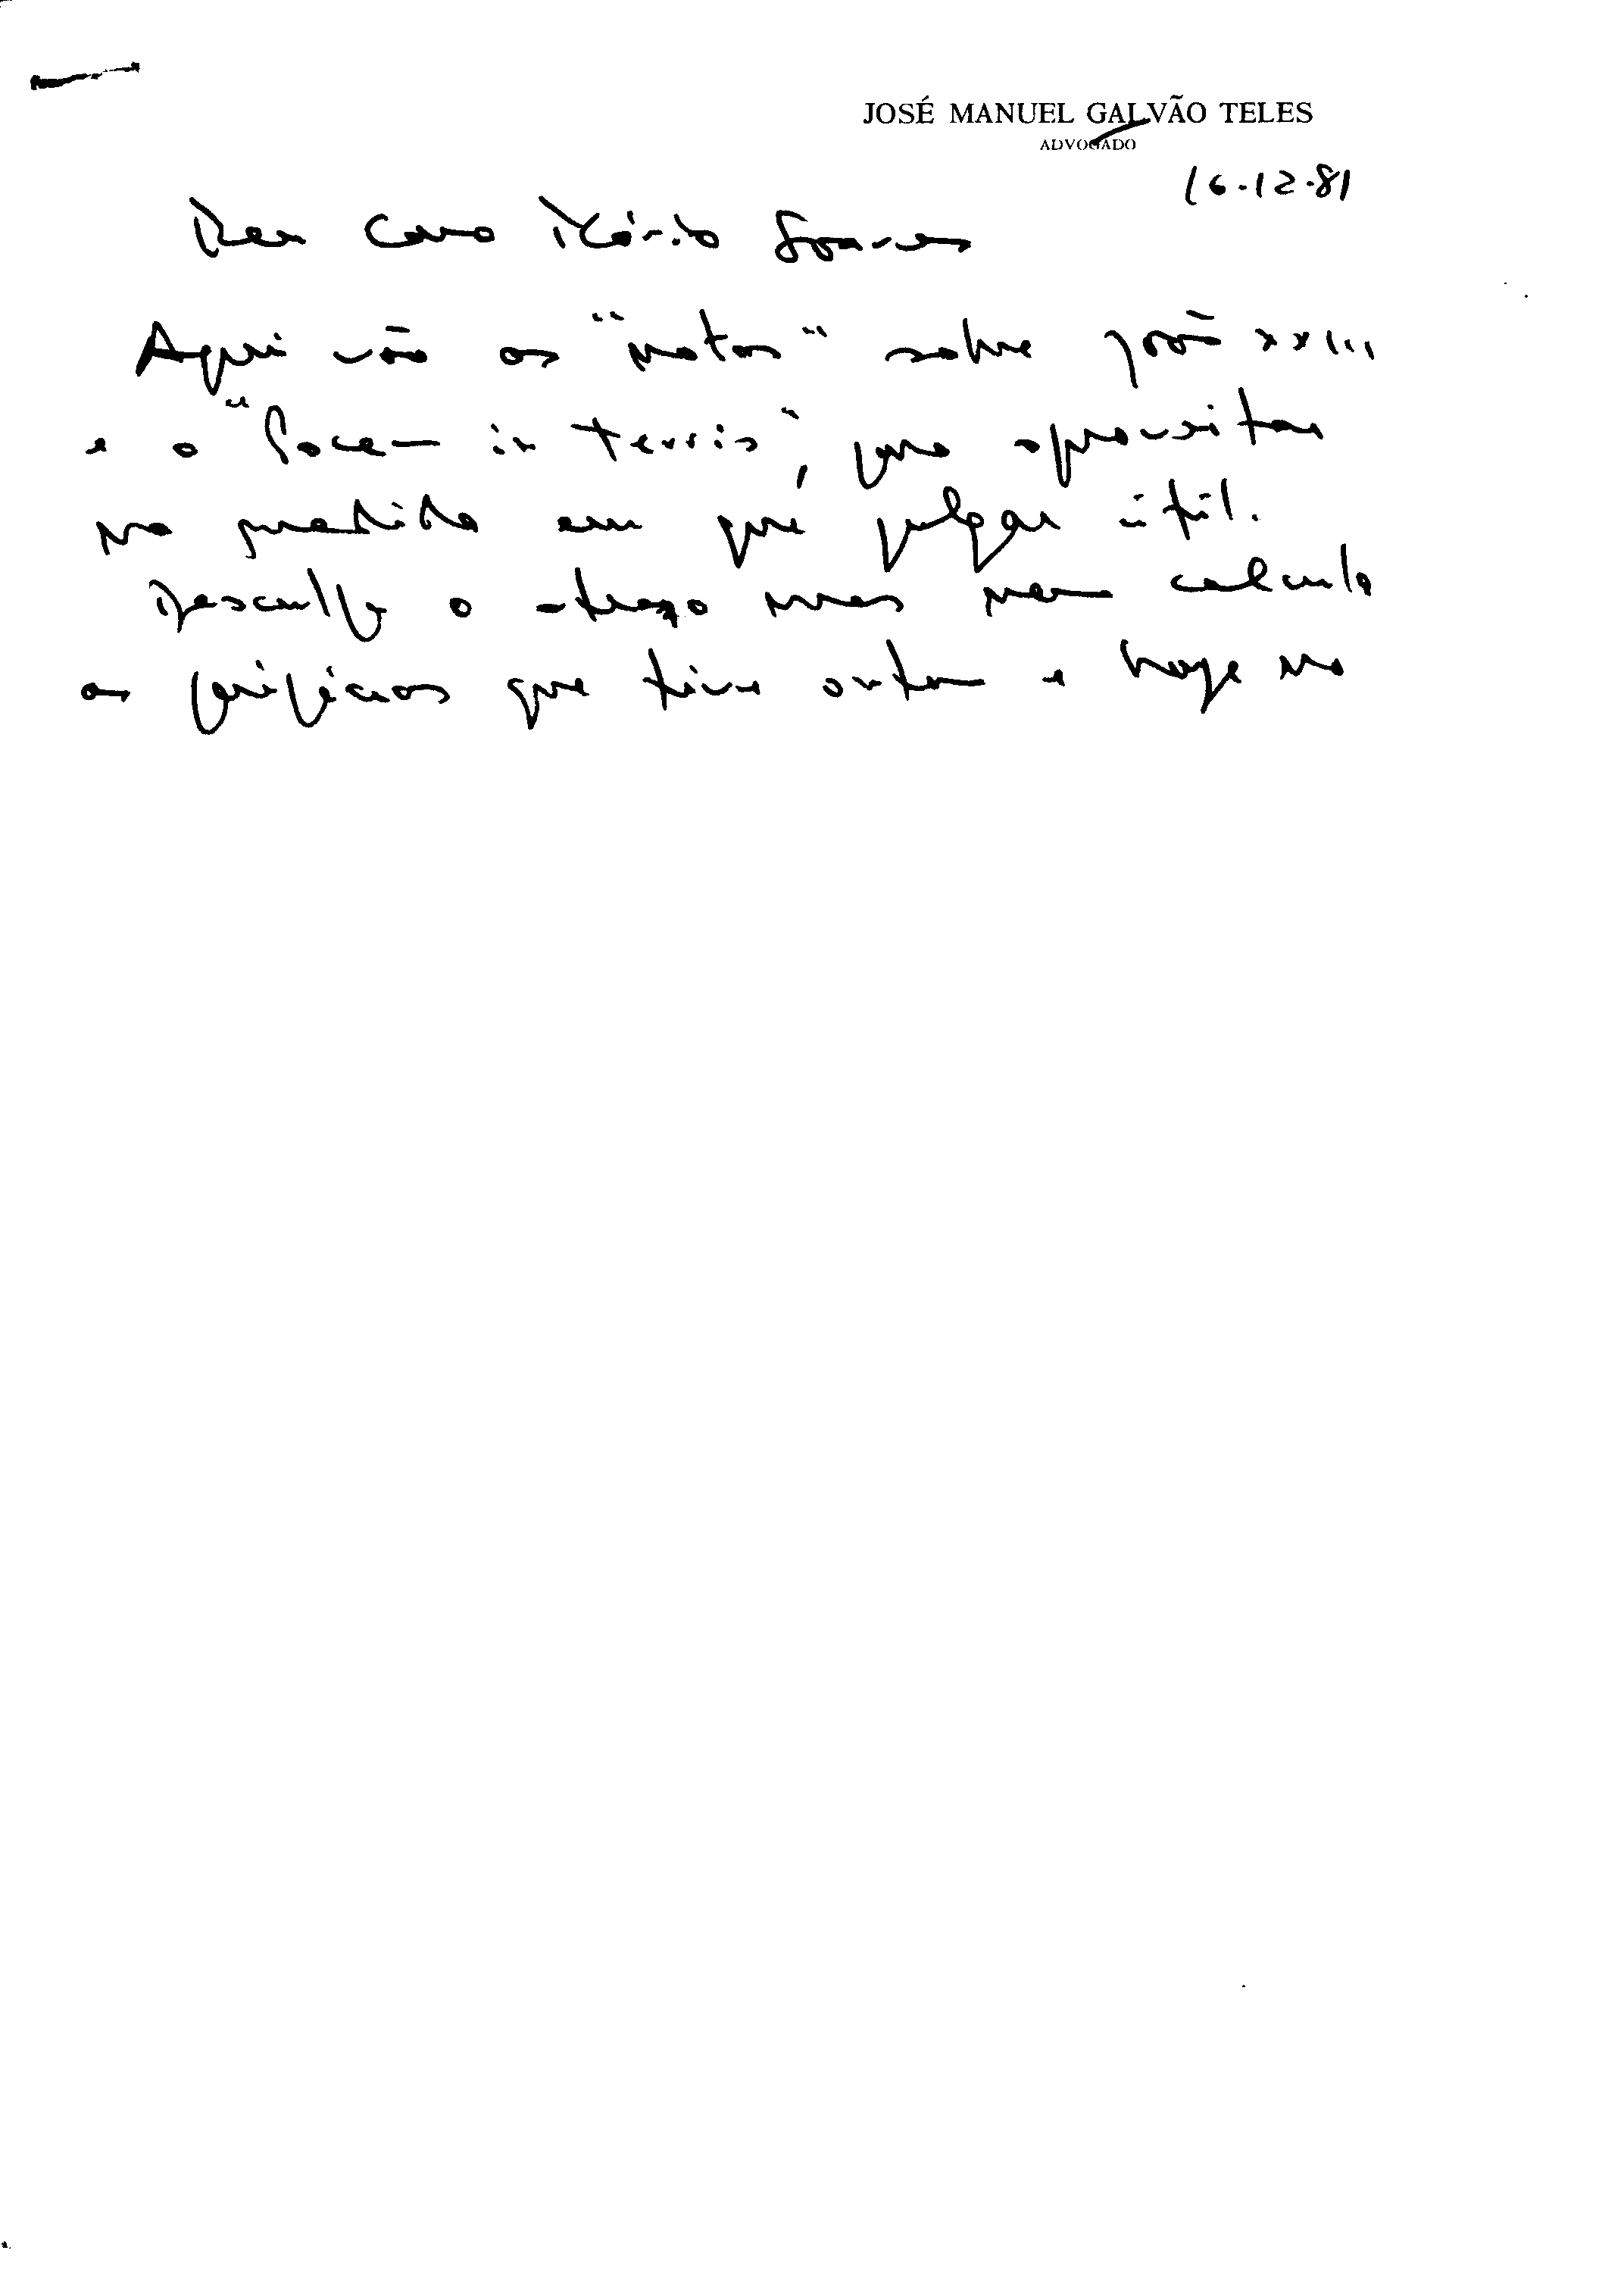 JOSÉ MANUEL GALVÃO TELES
ADVOGADO
16.12.81
Meu Caro Mário Soares
Aqui vão as "notas" sobre João XXIII
e a "Pacem in terris", para aproveitar
na medida em que julgar útil.
Desculpe o atraso mas nem calcula
as peripécias que tive ontem e hoje na